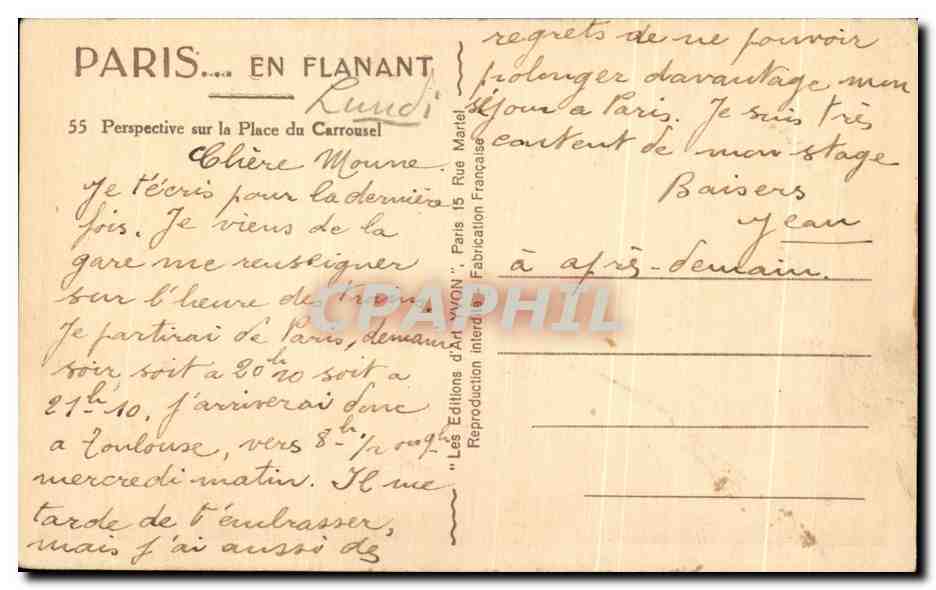 PARIS.... EN FLANANT
Lundi
55 Perspective sur la Place du Carrousel
Chère Moune.
Je t'écris pour la dernière
fois. Je viens de la
gare me renseigner
sur l'heure des trains.
Je partirai de Paris, demain
soir soit a 20h10 soit a
21h10. J'arriverai donc
a Toulouse, vers 8h, ou 9h
mercredi matin. Il me
tarde de t'embrasser,
mais j'ai aussi des
regrets de ne pouvoir
prolonger davantage mon
séjour a Paris. Je suis très
content de mon stage
Baisers
Jean
à après-demain.
"Les Editions d'Art YVON", Paris 15 Rue Martel
Reproduction interdite - Fabrication Française
CPAPHIL